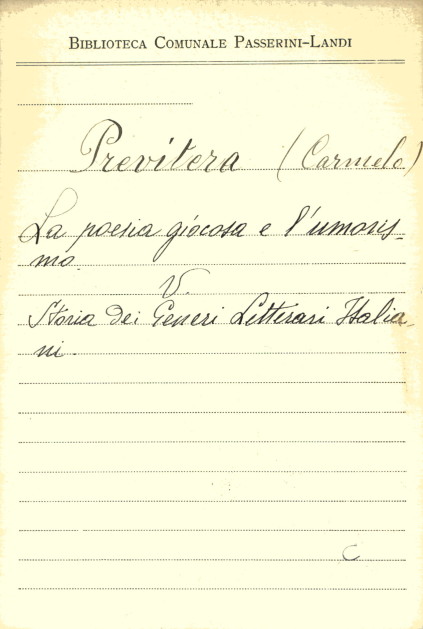 BIBLIOTECA COMUNALE PASSERINI-LANDI
Previtera (Carmelo)
La poesia giocosa e l'umoris-
mo.
V.
Storia dei Generi Letterari Italia-
ni.
C